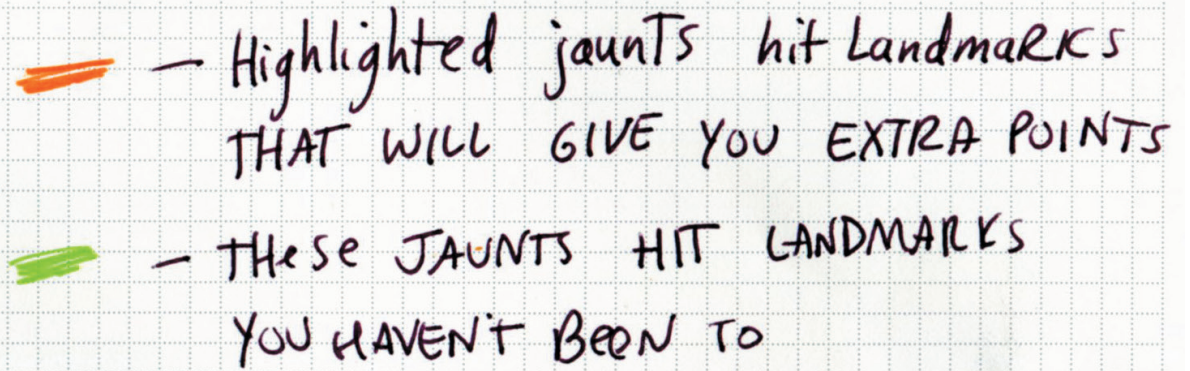 - Highlighted jaunts hit Landmarks
THAT WILL GIVE YOU EXTRA POINTS
- THese JAUNTS HIT LANDMARKS
YOU HAVEN'T BeeN TO